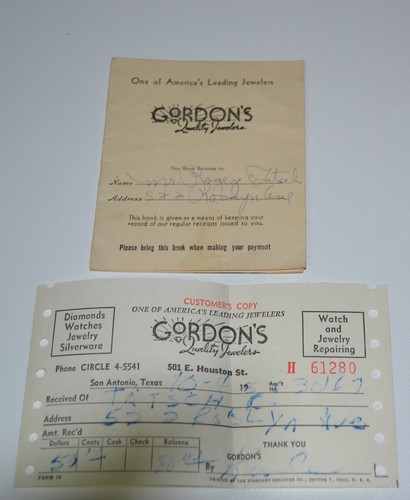 One of America's Leading Jewelers
GORDON'S
Quality Jewelers
This Book Belongs to:
Name Mr. Roger
Address 522 Roslyn Ave
This book is given as a means of keeping your
record of our regular receipts issued to you.
Please bring this book when making your payment
CUSTOMER'S COPY
ONE OF AMERICA'S LEADING JEWELERS
Diamonds
Watches
Jewelry
Silverware
GORDON'S
Quality Jewelers
Watch
and
Jewelry
Repairing
Phone CIRCLE 4-5541
501 E. Houston St.
H 61280
San Antonio, Texas 19 Acc't No.
Received Of
Address 522 Ave
Amt. Rec'd
Dollars Cents Cash Check Balance
THANK YOU
GORDON'S
By
FORM 10
PRINTED BY THE STANDARD REGISTER CO., DAYTON 1, OHIO, U. S. A.